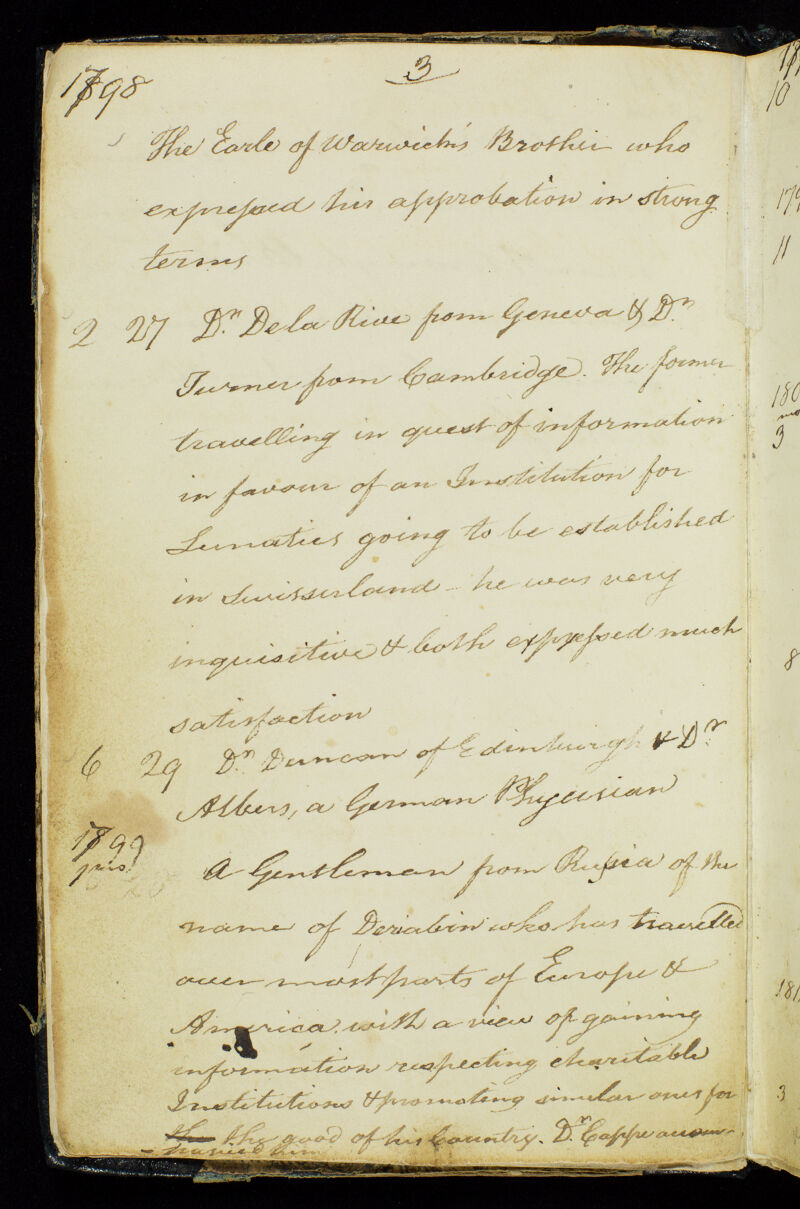 1798
3
The Earle of Warwick's Brother who
expressed his approbation in strong
terms
2 27 Dr. De la Rive from Geneva & Dr.
Turner from Cambridge. The former
travelling in quest of information
in favour of an Institution for
Lunatics going to be established
in Swisserland - he was very
inquisitive & both expressed much
satisfaction
6 29 Dr. Duncan of Edinburgh & Dr.
Albers, a German Physician
1799
A Gentleman from Russia of the
name of Deriabin who has travelled
over most parts of Europe &
America with a view of gaining
information respecting charitable
Institutions & promoting similar ones for
the the good of his Country. Dr. Cappe accom-
-panied him